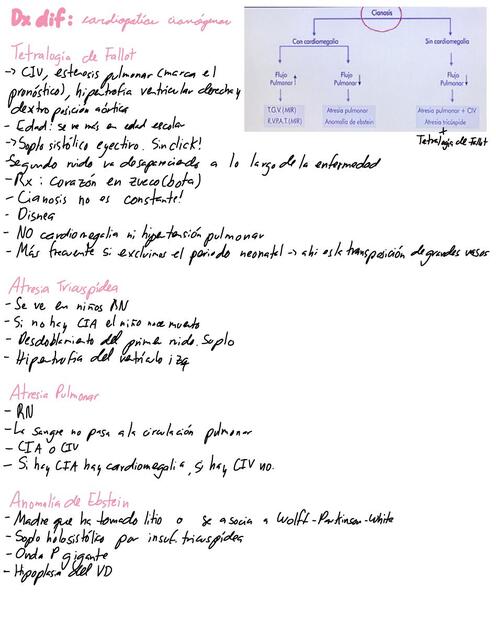 Dx dif: cardiopatías cianógenas
Cianosis
Con cardiomegalia
Sin cardiomegalia
Flujo Pulmonar ↑
Flujo Pulmonar ↓
Flujo Pulmonar ↓
T.G.V.(MIR)
R.V.P.A.T.(MIR)
Atresia pulmonar
Anomalía de ebstein
Atresia pulmonar + CIV
Atresia tricúspide
+
Tetralogía de Fallot
Tetralogía de Fallot
-> CIV, estenosis pulmonar (marca el
pronóstico), hipertrofia ventricular derecha y
dextroposición aórtica
- Edad: se ve más en edad escolar
-> Soplo sistólico eyectivo. Sin click!
Segundo ruido va desapareciendo a lo largo de la enfermedad
- Rx: corazón en zueco (bota)
- Cianosis no es constante!
- Disnea
- NO cardiomegalia ni hipertensión pulmonar
- Más frecuente si excluimos el periodo neonatal -> ahí es la transposición de grandes vasos
Atresia Tricúspidea
- Se ve en niños RN
- Si no hay CIA el niño nace muerto
- Desdoblamiento del primer ruido. Soplo
- Hipertrofia del ventrículo izq
Atresia Pulmonar
- RN
- La sangre no pasa a la circulación pulmonar
- CIA o CIV
- Si hay CIA hay cardiomegalia, si hay CIV no.
Anomalía de Ebstein
- Madre que ha tomado litio o se asocia a Wolff-Parkinson-White
- Soplo holosistólico por insuf. tricuspídea
- Onda P gigante
- Hipoplasia del VD